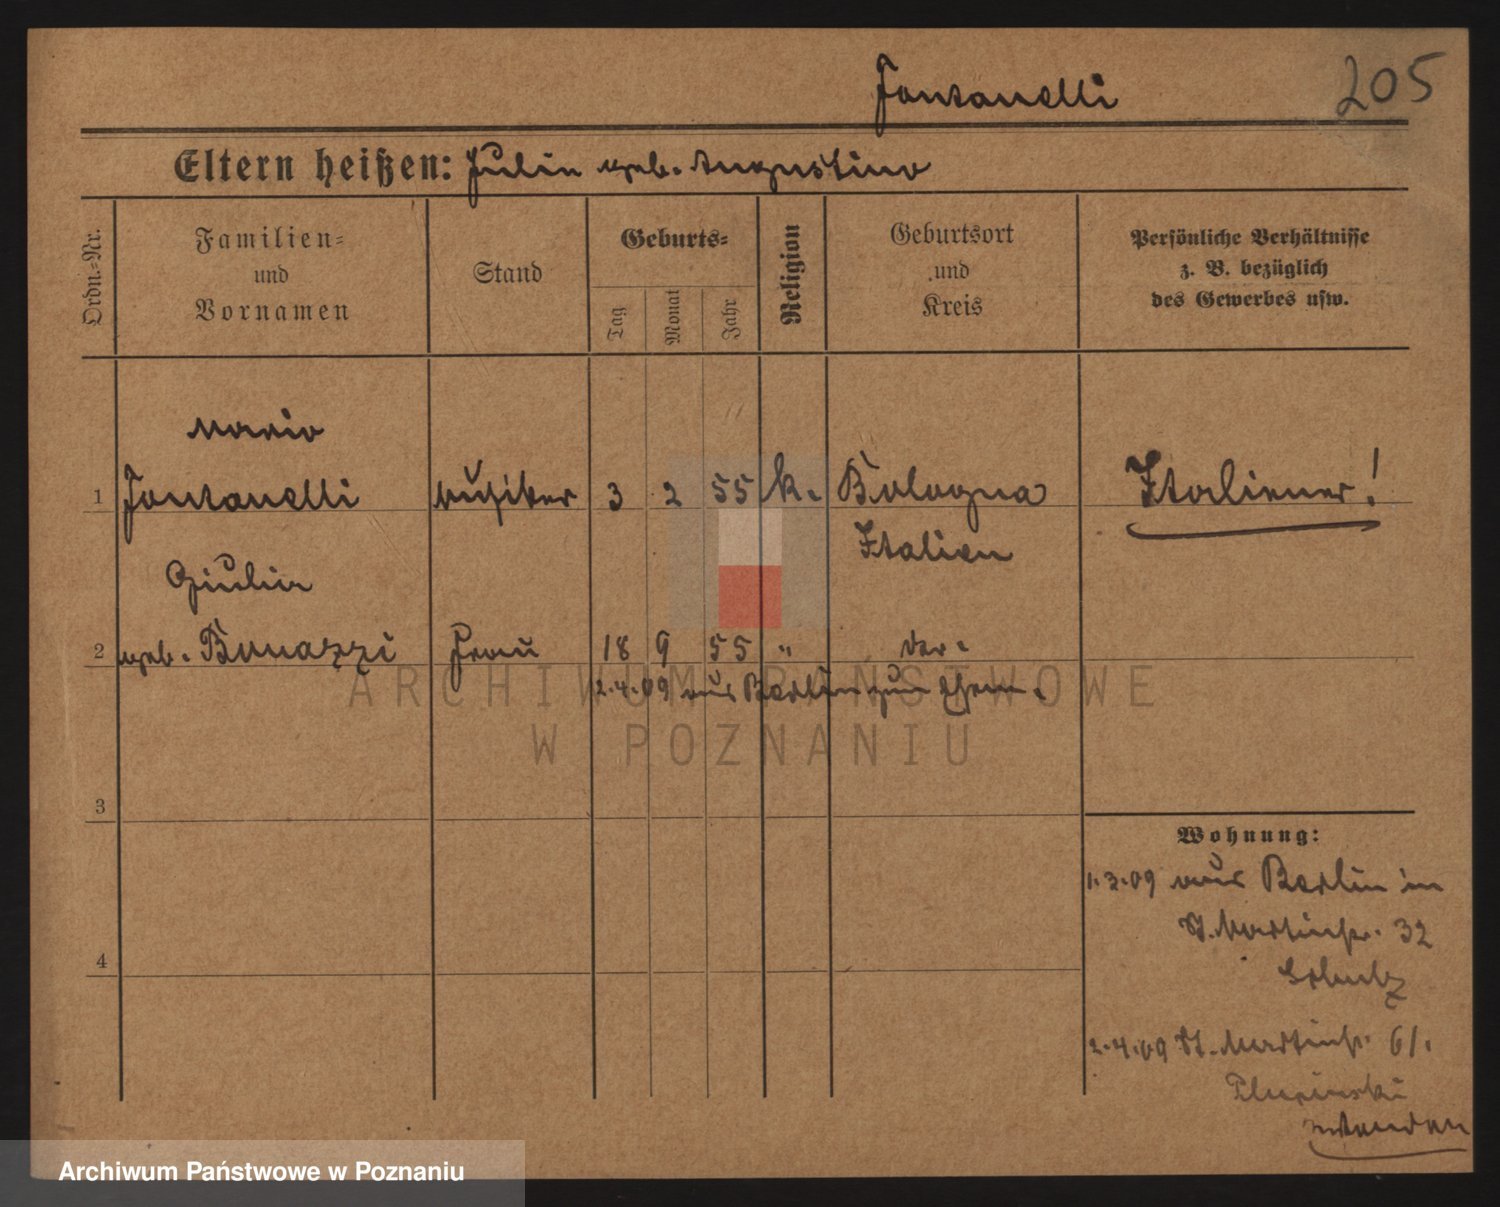 Fontanelli 205
Eltern heißen: Julia geb. Augustino
Ordn.=Nr.
Familien=
und
Vornamen
Stand
Geburts=
Tag
Monat
Jahr
Religion
Geburtsort
und
Kreis
Persönliche Verhältnisse
z. B. bezüglich
des Gewerbes usw.
Mario
1 Fontanelli Musiker 3 2 55 k. Bologna Italiener!
Italien
Giulia
2 geb. Bonazzi Frau 18 9 55 " der.
2.4.09 aus Berlin zum Ehem.
3
Wohnung:
1.3.09 aus Berlin in
St. Martinstr. 32
4
2.4.09 St. Martinstr. 61.
ARCHIWUM PAŃSTWOWE
W POZNANIU
Archiwum Państwowe w Poznaniu